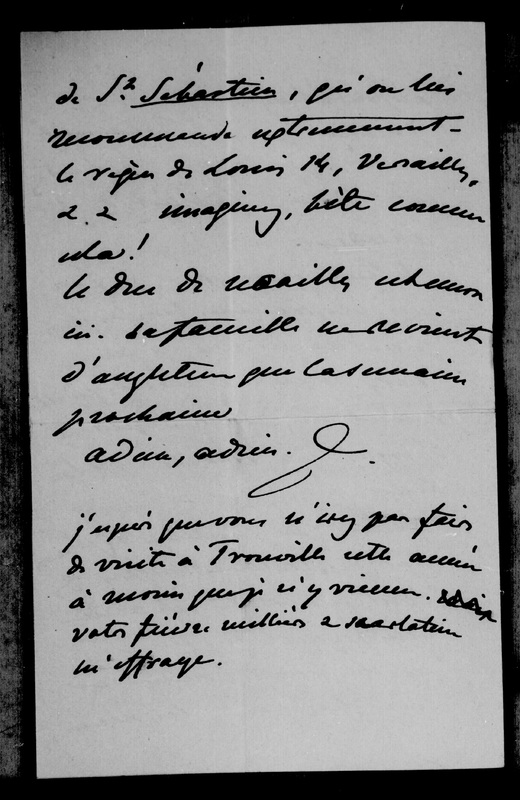 de St Sébastien, qu'on lui
recommande extrêmement
le règne de Louis 14, Versailles,
imaginez, bête comme
cela!
le duc de noailles est mon
sa famille ne revient
d'angleterre que la semaine
prochaine
adieu, adieu.
j'espère que vous n'irez pas faire
de visite à Trouville cette année
à moins que je n'y vienne.
votre fièvre milliaire & scarlatine
m'effraye.